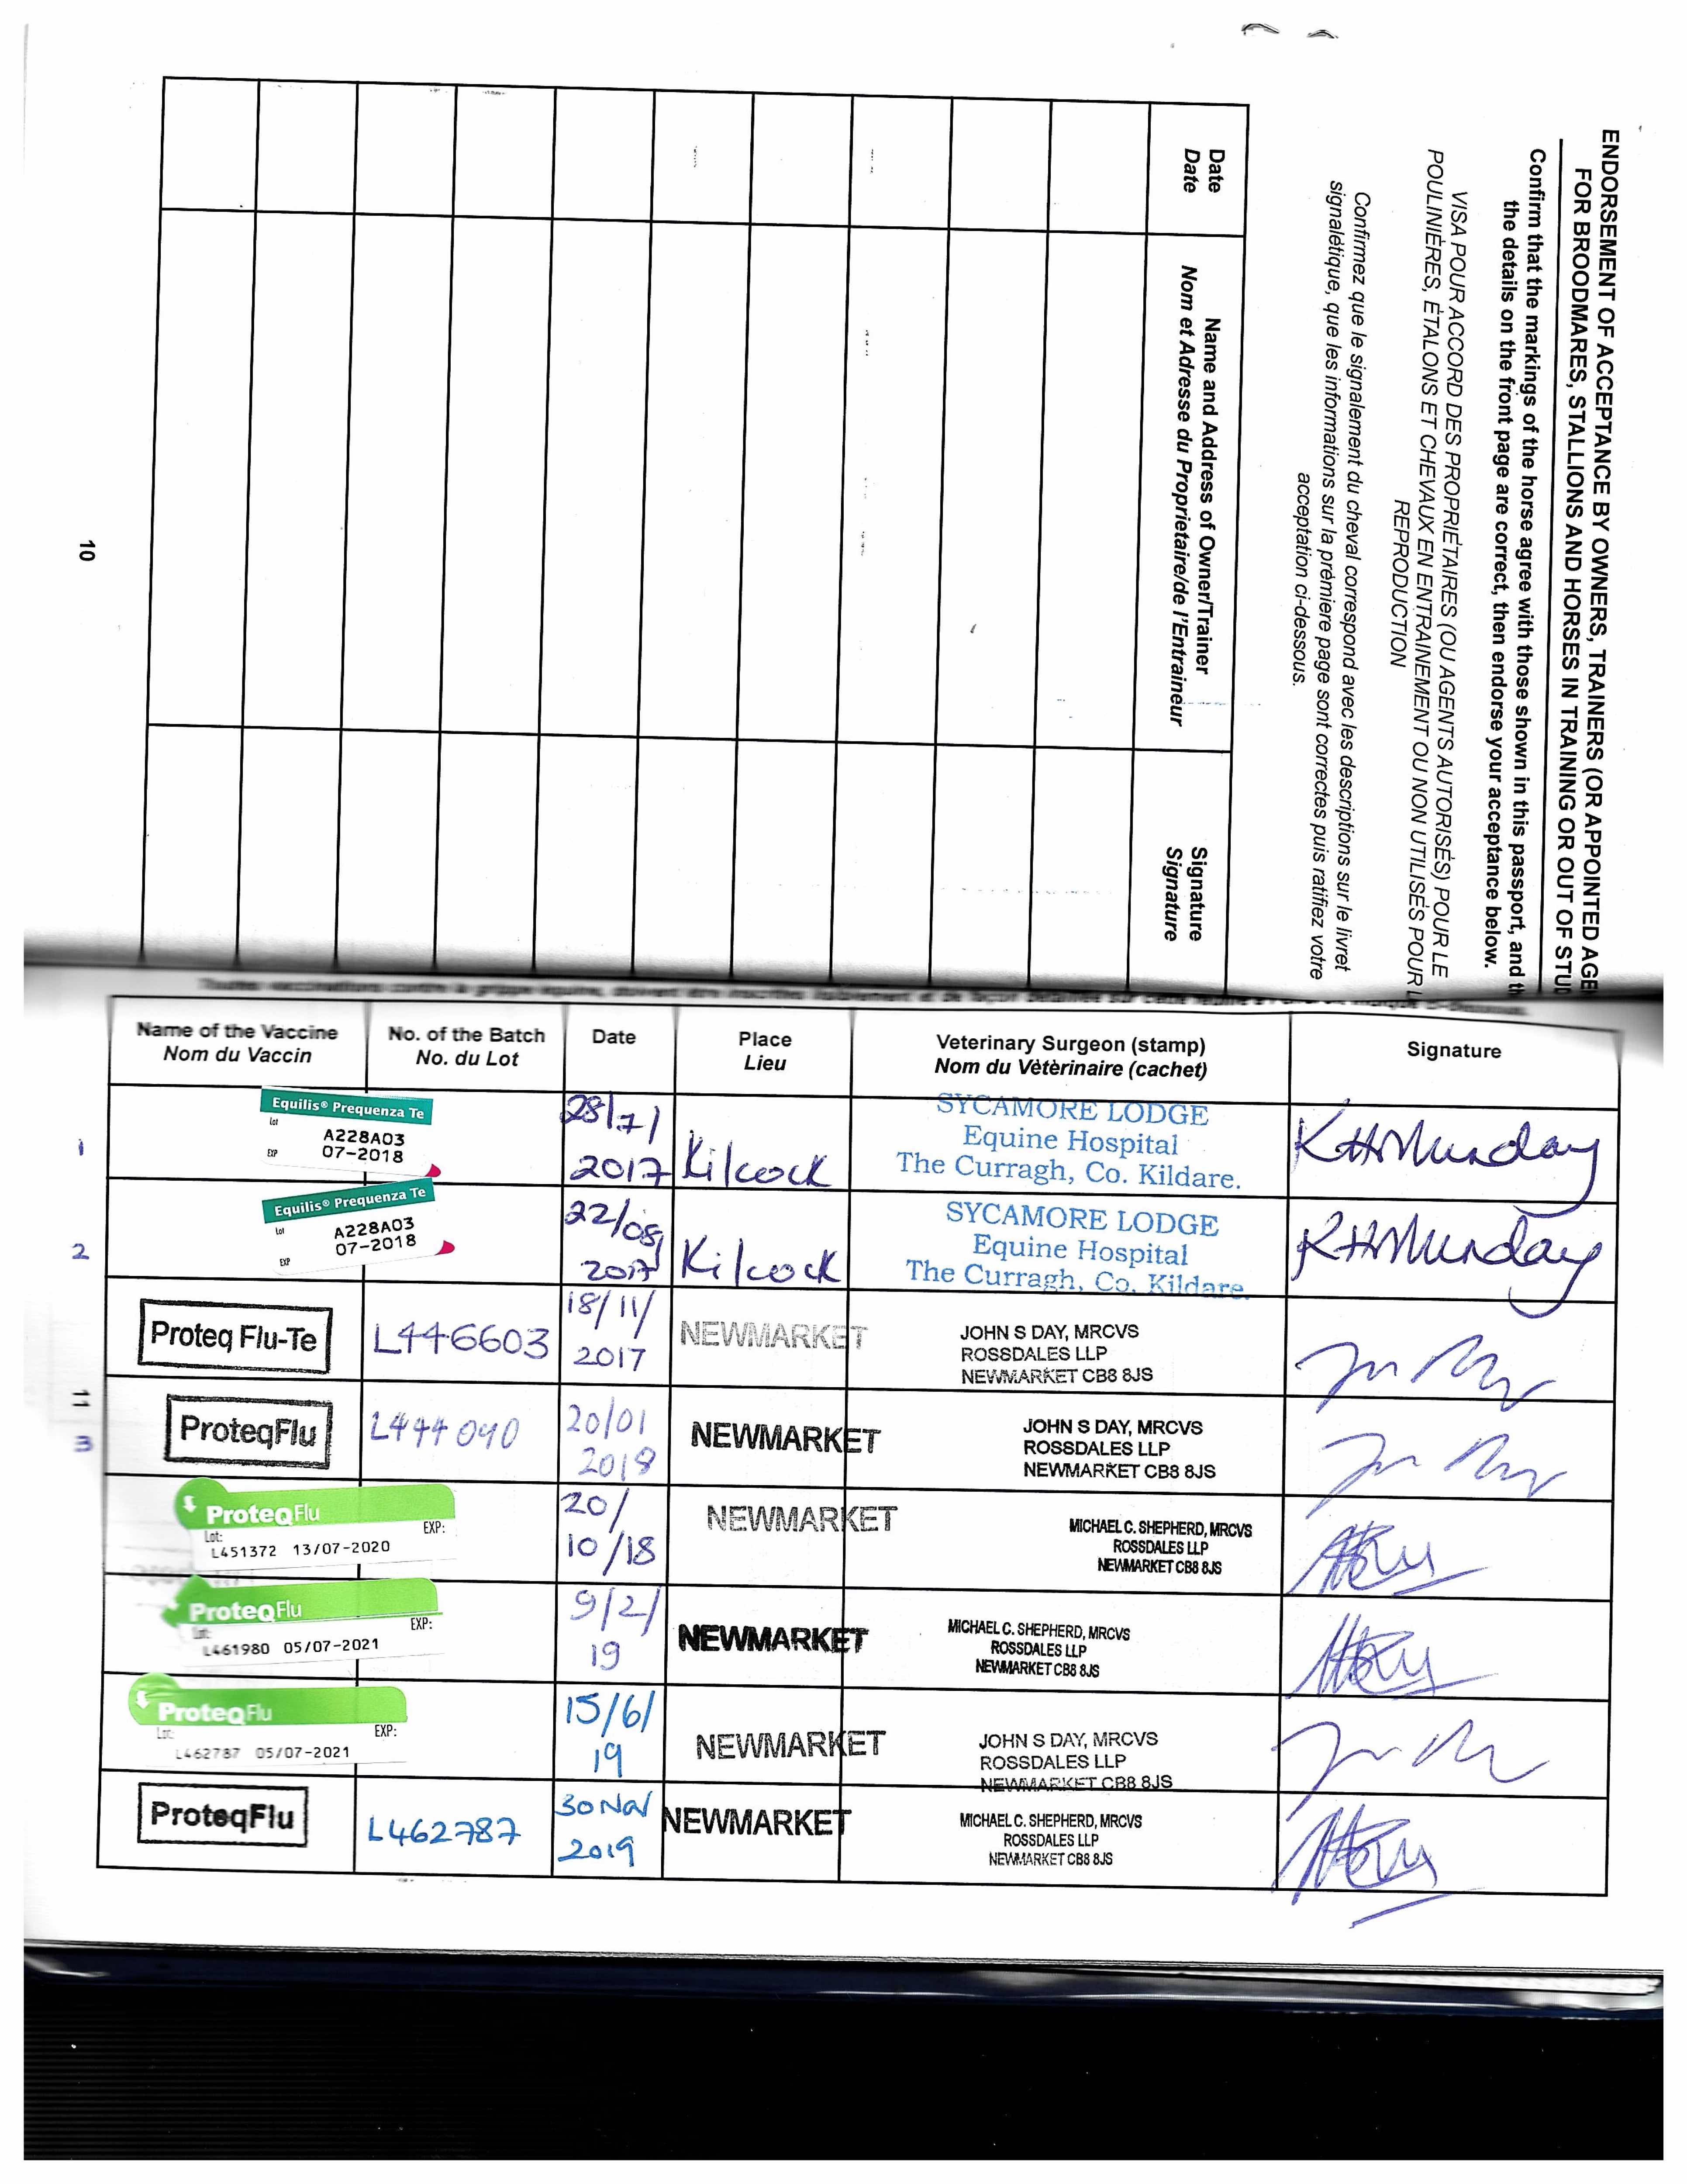 ENDORSEMENT OF ACCEPTANCE BY OWNERS, TRAINERS (OR APPOINTED AGE
FOR BROODMARES, STALLIONS AND HORSES IN TRAINING OR OUT OF STUD
Confirm that the markings of the horse agree with those shown in this passport, and th
the details on the front page are correct, then endorse your acceptance below.
VISA POUR ACCORD DES PROPRIÉTAIRES (OU AGENTS AUTORISÉS) POUR LE
POULINIÈRES, ÉTALONS ET CHEVAUX EN ENTRAINEMENT OU NON UTILISÉS POUR L
REPRODUCTION
Confirmez que le signalement du cheval correspond avec les descriptions sur le livret
signalétique, que les informations sur la prèmiere page sont correctes puis ratifiez votre
acceptation ci-dessous.
Date Name and Address of Owner/Trainer Signature
Date Nom et Adresse du Proprietaire/de l'Entraineur Signature
10
Name of the Vaccine No. of the Batch Date Place Veterinary Surgeon (stamp) Signature
Nom du Vaccin No. du Lot Lieu Nom du Vètèrinaire (cachet)
1
Equilis® Prequenza Te
Lot A228A03
EXP 07-2018
28/7/
2017
Kilcock
SYCAMORE LODGE
Equine Hospital
The Curragh, Co. Kildare.
KHMunday
2
Equilis® Prequenza Te
Lot A228A03
EXP 07-2018
22/08/
2017
Kilcock
SYCAMORE LODGE
Equine Hospital
The Curragh, Co. Kildare.
KHMunday
Proteq Flu-Te
L446603
18/11/
2017
NEWMARKET
JOHN S DAY, MRCVS
ROSSDALES LLP
NEWMARKET CB8 8JS
11
3
ProteqFlu
L444090
20/01
2018
NEWMARKET
JOHN S DAY, MRCVS
ROSSDALES LLP
NEWMARKET CB8 8JS
ProteqFlu
Lot: EXP:
L451372 13/07-2020
20/
10/18
NEWMARKET
MICHAEL C. SHEPHERD, MRCVS
ROSSDALES LLP
NEWMARKET CB8 8JS
ProteqFlu
Lot: EXP:
L461980 05/07-2021
9/2/
19
NEWMARKET
MICHAEL C. SHEPHERD, MRCVS
ROSSDALES LLP
NEWMARKET CB8 8JS
ProteqFlu
Lot: EXP:
L462787 05/07-2021
15/6/
19
NEWMARKET
JOHN S DAY, MRCVS
ROSSDALES LLP
NEWMARKET CB8 8JS
ProteqFlu
L462787
30 Nov
2019
NEWMARKET
MICHAEL C. SHEPHERD, MRCVS
ROSSDALES LLP
NEWMARKET CB8 8JS